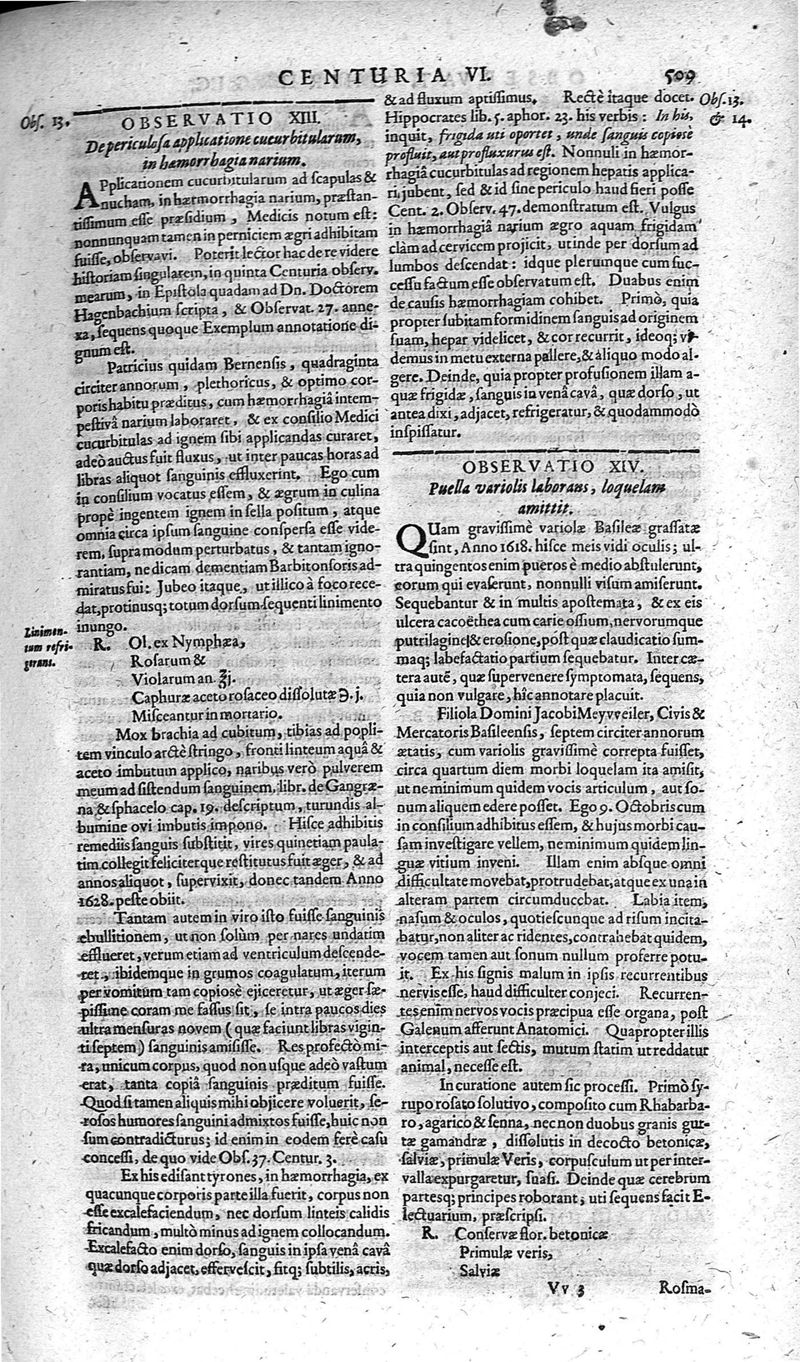 CENTURIA VI.
509
Obs. 13.
OBSERVATIO XIII.
De periculosa applicatione cucurbitularum,
in hæmorrhagia narium.
APplicationem cucurbitularum ad scapulas &
nucham, in hæmorrhagia narium, præstan-
tissimum esse præsidium, Medicis notum est:
nonnunquam tamen in perniciem ægri adhibitam
fuisse, observavi. Poterit lector hac de re videre
historiam singularem, in quinta Centuria observ.
mearum, in Epistola quadam ad Dn. Doctorem
Hagenbachium scripta, & Observat. 27. anne-
xa, sequens quoque Exemplum annotatione di-
gnum est.
Patricius quidam Bernensis, quadraginta
circiter annorum, plethoricus, & optimo cor-
poris habitu præditus, cum hæmorrhagiâ intem-
pestivâ narium laboraret, & ex consilio Medici
cucurbitulas ad ignem sibi applicandas curaret,
adeò auctus fuit fluxus, ut inter paucas horas ad
libras aliquot sanguinis effluxerint. Ego cum
in consilium vocatus essem, & ægrum in culina
propè ingentem ignem in sella positum, atque
omnia circa ipsum sanguine conspersa esse vide-
rem, supra modum perturbatus, & tantam igno-
rantiam, ne dicam dementiam Barbitonsoris ad-
miratus fui: Jubeo itaque, ut illico à foco rece-
dat, protinusq; totum dorsum sequenti linimento
inungo.
Linimen-
tum refri-
gerans.
R. Ol. ex Nymphæa,
Rosarum &
Violarum an. ʒj.
Caphuræ aceto rosaceo dissolutæ ℈. j.
Misceantur in mortario.
Mox brachia ad cubitum, tibias ad popli-
tem vinculo arctè stringo, fronti linteum aquâ &
aceto imbutum applico, naribus verò pulverem
meum ad sistendum sanguinem, libr. de Gangræ-
na & sphacelo cap. 19. descriptum, turundis al-
bumine ovi imbutis impono. Hisce adhibitis
remediis sanguis substitit, vires quinetiam paula-
tim collegit feliciterque restitutus fuit æger, & ad
annos aliquot, supervixit, donec tandem Anno
1628. peste obiit.
Tantam autem in viro isto fuisse sanguinis
ebullitionem, ut non solùm per nares undatim
efflueret, verum etiam ad ventriculum descende-
ret, ibidemque in grumos coagulatum, iterum
per vomitum tam copiosè ejiceretur, ut æger sæ-
pissime coram me fassus sit, se intra paucos dies
ultra mensuras novem (quæ faciunt libras vigin-
ti septem) sanguinis amisisse. Res profectò mi-
ra, unicum corpus, quod non usque adeò vastum
erat, tanta copiâ sanguinis præditum fuisse.
Quod si tamen aliquis mihi objicere voluerit, se-
rosos humores sanguini admixtos fuisse, huic non
sum contradicturus; id enim in eodem ferè casu
concessi, de quo vide Obs. 37. Centur. 3.
Ex his ediscant tyrones, in hæmorrhagia, ex
quacunque corporis parte illa fuerit, corpus non
esse excalefaciendum, nec dorsum linteis calidis
fricandum, multò minus ad ignem collocandum.
Excalefacto enim dorso, sanguis in ipsa venâ cavâ
quæ dorso adjacet, effervescit, fitq; subtilis, acris,
& ad fluxum aptissimus. Rectè itaque docet.
Hippocrates lib. 5. aphor. 23. his verbis: In his,
inquit, frigida uti oportet, unde sanguis copiosè
profluit, aut profluxurus est. Nonnuli in hæmor-
rhagiâ cucurbitulas ad regionem hepatis applica-
ri jubent, sed & id sine periculo haud fieri posse
Cent. 2. Observ. 47. demonstratum est. Vulgus
in hæmorrhagiâ narium ægro aquam frigidam
clàm ad cervicem projicit, ut inde per dorsum ad
lumbos descendat: idque plerumque cum suc-
cessu factum esse observatum est. Duabus enim
de causis hæmorrhagiam cohibet. Primò, quia
propter subitam formidinem sanguis ad originem
suam, hepar videlicet, & cor recurrit, ideoq; vi-
demus in metu externa pallere, & aliquo modo al-
gere. Deinde, quia propter profusionem illam a-
quæ frigidæ, sanguis in venâ cavâ, quæ dorso, ut
antea dixi, adjacet, refrigeratur, & quodammodò
inspissatur.
Obs. 13.
& 14.
OBSERVATIO XIV.
Puella variolis laborans, loquelam
amittit.
QUam gravissimè variolæ Basileæ grassatæ
sint, Anno 1618. hisce meis vidi oculis; ul-
tra quingentos enim pueros è medio abstulerunt,
eorum qui evaserunt, nonnulli visum amiserunt.
Sequebantur & in multis apostemata, & ex eis
ulcera cacoëthea cum carie ossium, nervorumque
putrilagine & erosione, post quæ claudicatio sum-
maq; labefactatio partium sequebatur. Inter cæ-
tera autẽ, quæ supervenere symptomata, sequens,
quia non vulgare, hîc annotare placuit.
Filiola Domini Jacobi Meyvveiler, Civis &
Mercatoris Basileensis, septem circiter annorum
ætatis, cum variolis gravissimè correpta fuisset,
circa quartum diem morbi loquelam ita amisit,
ut ne minimum quidem vocis articulum, aut so-
num aliquem edere posset. Ego 9. Octobris cum
in consilium adhibitus essem, & hujus morbi cau-
sam investigare vellem, ne minimum quidem lin-
guæ vitium inveni. Illam enim absque omni
difficultate movebat, protrudebat, atque ex una in
alteram partem circumducebat. Labia item,
nasum & oculos, quotiescunque ad risum incita-
batur, non aliter ac ridentes, contrahebat quidem,
vocem tamen aut sonum nullum proferre potu-
it. Ex his signis malum in ipsis recurrentibus
nervis esse, haud difficulter conjeci. Recurren-
tes enim nervos vocis præcipua esse organa, post
Galenum afferunt Anatomici. Quapropter illis
interceptis aut sectis, mutum statim ut reddatur
animal, necesse est.
In curatione autem sic processi. Primò sy-
rupo rosato solutivo, composito cum Rhabarba-
ro, agarico & senna, nec non duobus granis gut-
tæ gamandræ, dissolutis in decocto betonicæ,
salviæ, primulæ Veris, corpusculum ut per inter-
valla expurgaretur, suasi. Deinde quæ cerebrum
partesq; principes roborant, uti sequens facit E-
lectuarium, præscripsi.
R. Conservæ flor. betonicæ
Primulæ veris,
Salviæ
Vv 3
Rosma-